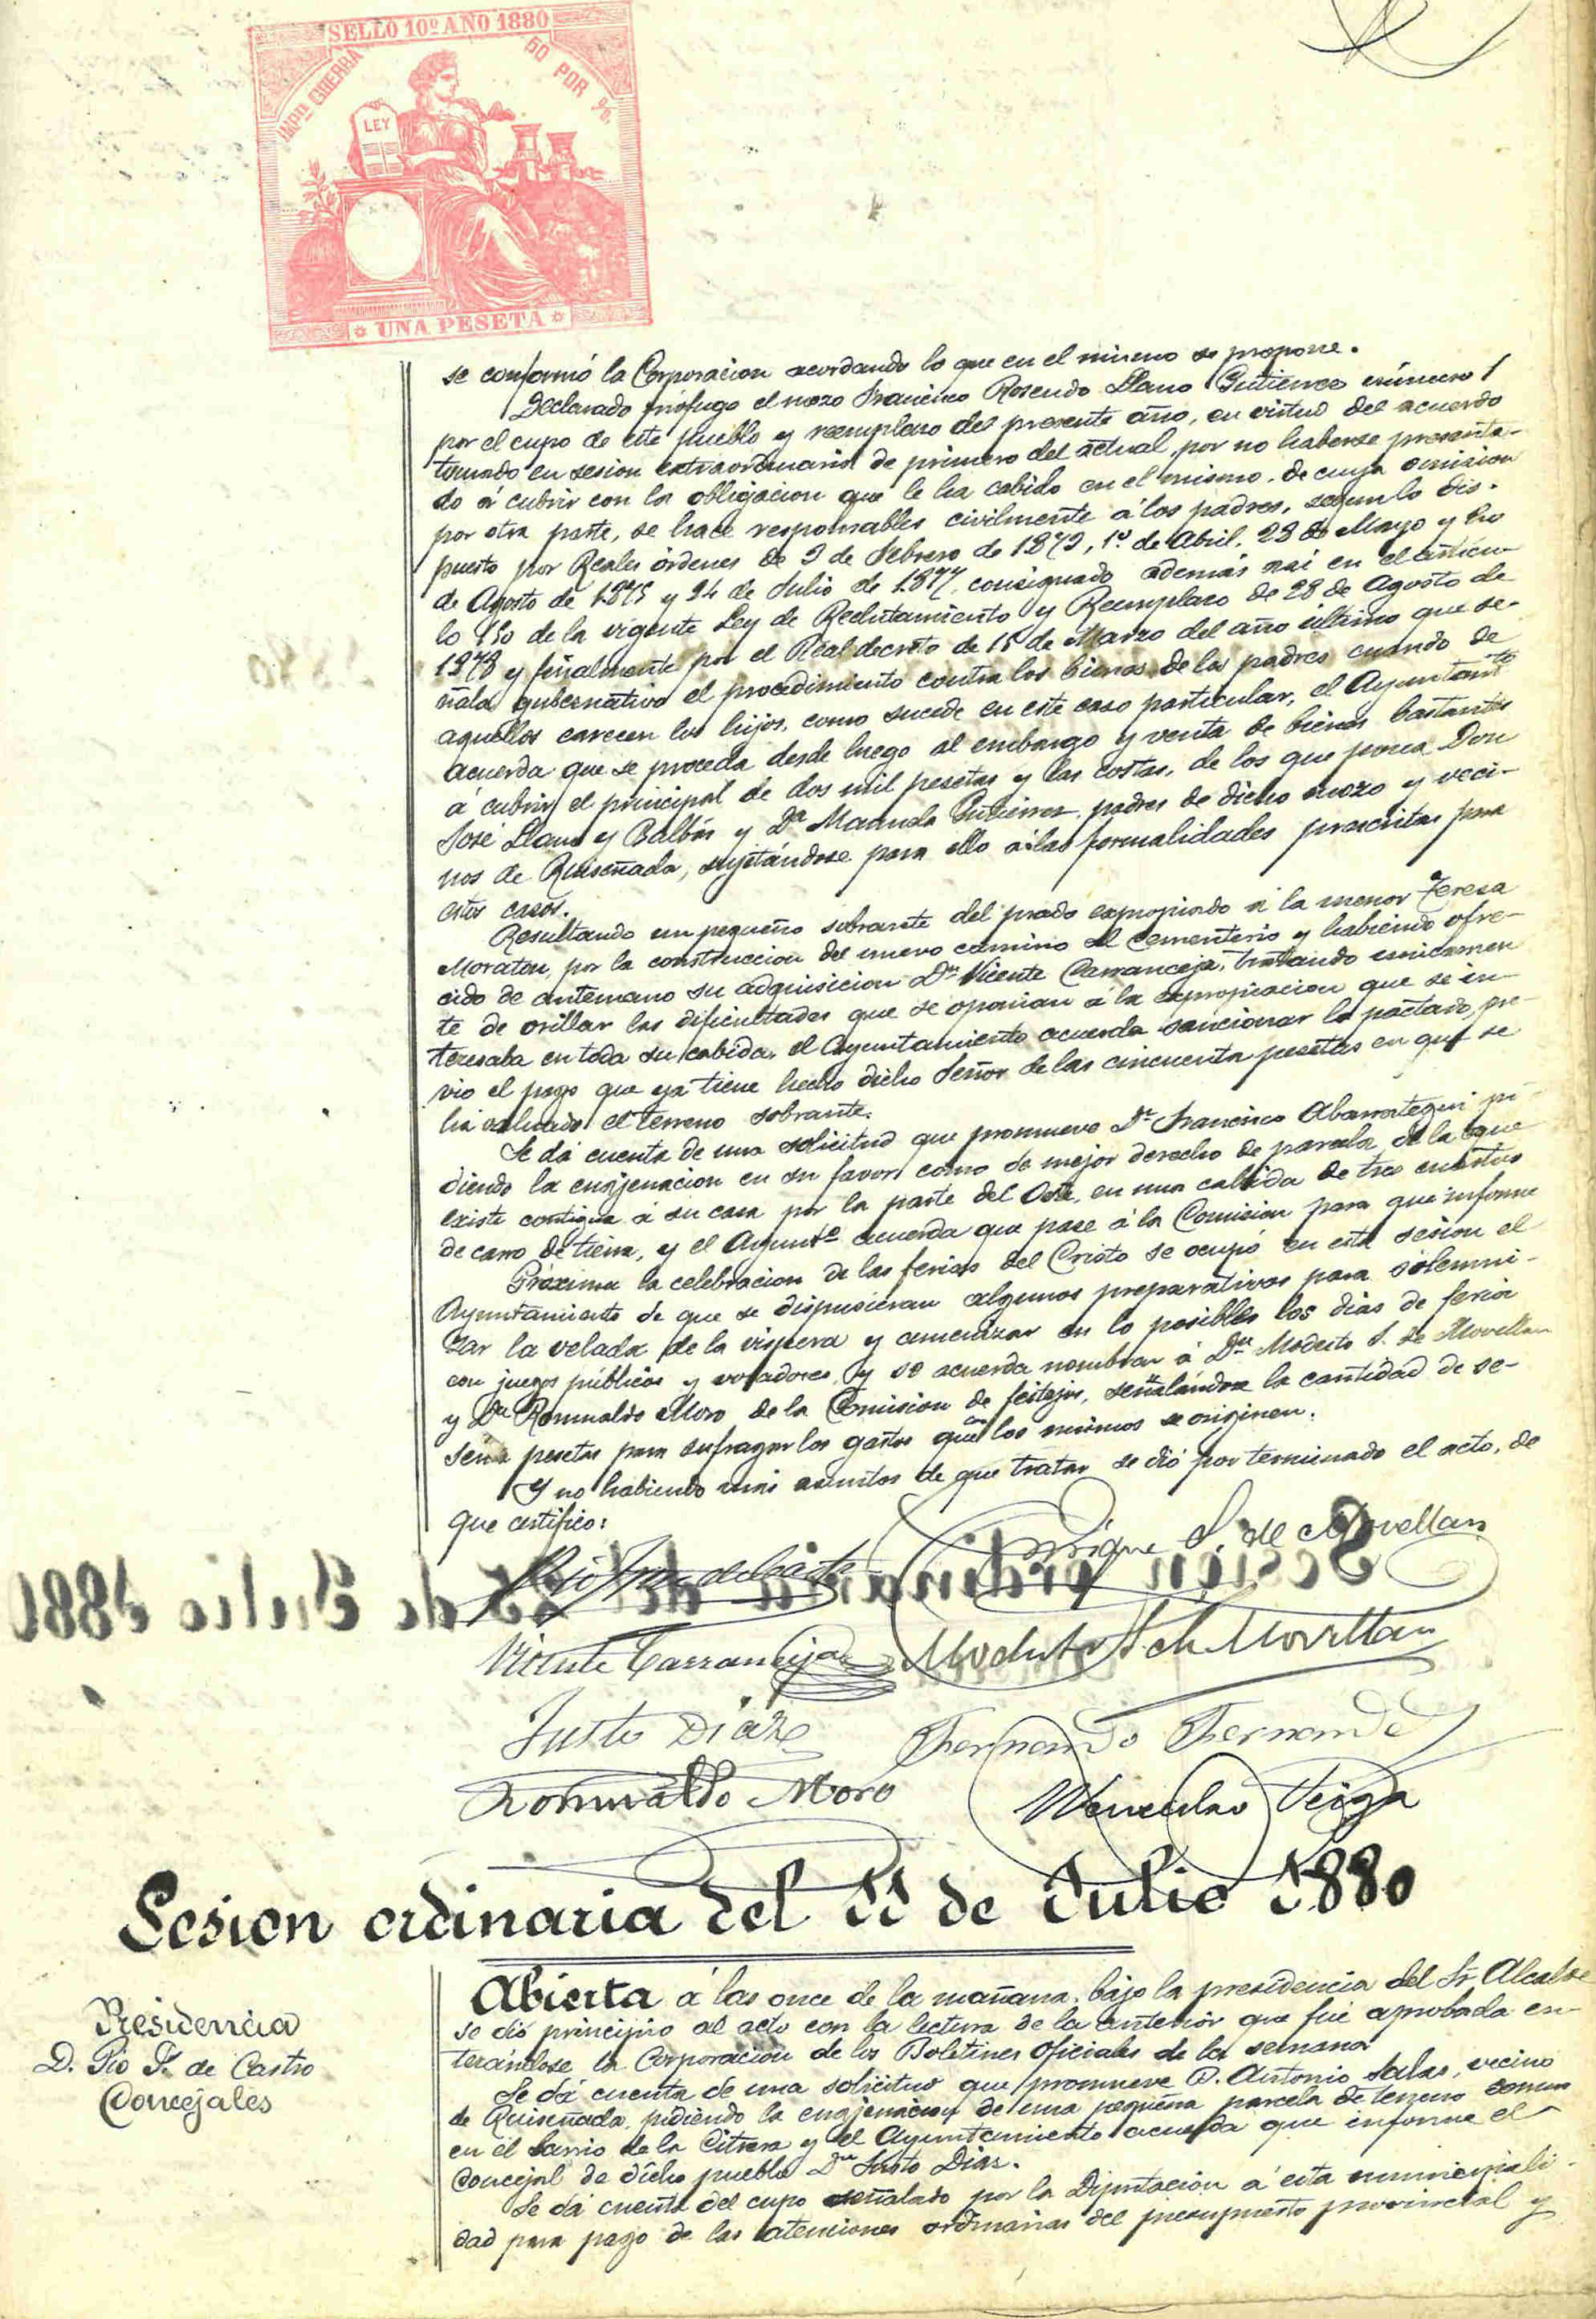 SELLO 10º AÑO 1880
IMPº GUERRA
50 POR %
LEY
* UNA PESETA *
se conformó la Corporacion acordando lo que en el mismo se propone.
Declarado prófugo el mozo Francisco Rosendo Llano Gutierrez número 1
por el cupo de este pueblo y reemplazo del presente año, en virtud del acuerdo
tomado en sesion extraordinaria de primero del actual, por no haberse presenta-
do á cubrir con la obligacion que le ha cabido en el mismo, de cuya omision
por otra parte, se hace responsables civilmente á los padres, segun lo dis-
puesto por Reales órdenes de 3 de Febrero de 1872, 1º de Abril, 23 de Mayo y
de Agosto de 1875 y 24 de Julio de 1877, consignado además asi en el artícu-
lo 150 de la vigente Ley de Reclutamiento y Reemplazo de 28 de Agosto de
1878 y finalmente por el Real decreto de 15 de Marzo del año último que se-
ñala gubernativo el procedimiento contra los bienes de los padres cuando de
aquellos carecen los hijos, como sucede en este caso particular, el Ayuntamto
acuerda que se proceda desde luego al embargo y venta de bienes bastantes
á cubrir el principal de dos mil pesetas y las costas, de los que posea Don
José Llano y Balbás y Dª Manuela Gutierrez padres de dicho mozo y veci-
nos de Ruiseñada, sujetándose para ello á las formalidades prescritas para
estos casos.
Resultando un pequeño sobrante del prado expropiado á la menor Teresa
Moratou, por la construccion del nuevo camino al cementerio y habiendo ofre-
cido de antemano su adquisicion Dn Vicente Carranceja, tratando unicamen
te de orillar las dificultades que se oponian á la expropiacion que se in-
teresaba en toda su cabida, el Ayuntamiento acuerda sancionar lo pactado, pre-
vio el pago que ya tiene hecho dicho Señor de las cincuenta pesetas en que se
ha valuado el terreno sobrante.
Se dá cuenta de una solicitud que promueve Dn Francisco Abarrategui pi-
diendo la enajenacion en su favor como de mejor derecho de parcela de la que
existe contigua á su casa por la parte del Oeste, en una cabida de tres cuartos
de carro de tierra, y el Ayuntº acuerda que pase á la Comision para que informe
Próxima la celebracion de las ferias del Cristo se ocupó en esta sesion el
Ayuntamiento de que se dispusieran algunos preparativos para solemni-
zar la velada de la vispera y amenizar en lo posible los dias de feria
con juegos públicos y voladores, y se acuerda nombrar á Dn Modesto S. de Movellan
y Dn Romualdo Moro de la Comision de festejos, señalándose la cantidad de se-
senta pesetas para sufragar los gastos que con los mismos se originen.
Y no habiendo mas asuntos de que tratar se dió por terminado el acto, de
que certifico:
Pio Fnz de Castro
Enrique S. de Movellan
Sesion ordinaria del 25 de Julio 1880
Vicente Carranceja
Modesto S. de Movellan
Justo Diaz
Fernando Fernandez
Romualdo Moro
Wenceslao Veiga
Sesion ordinaria del 11 de Julio 1880
Presidencia
D. Pio F. de Castro
Concejales
Abierta á las once de la mañana, bajo la presidencia del Sr. Alcalde
se dió principio al acto con la lectura de la anterior que fué aprobada en-
terándose la Corporacion de los Boletines oficiales de la semana
Se dá cuenta de una solicitud que promueve D. Antonio Salas, vecino
de Ruiseñada, pidiendo la enajenacion de una pequeña parcela de terreno comun
en el barrio de la y el Ayuntamiento acuerda que informe el
Concejal de dicho pueblo Dn Justo Dias.
Se dá cuenta del cupo señalado por la Diputacion á esta municipali-
dad para pago de las atenciones ordinarias del presupuesto provincial y